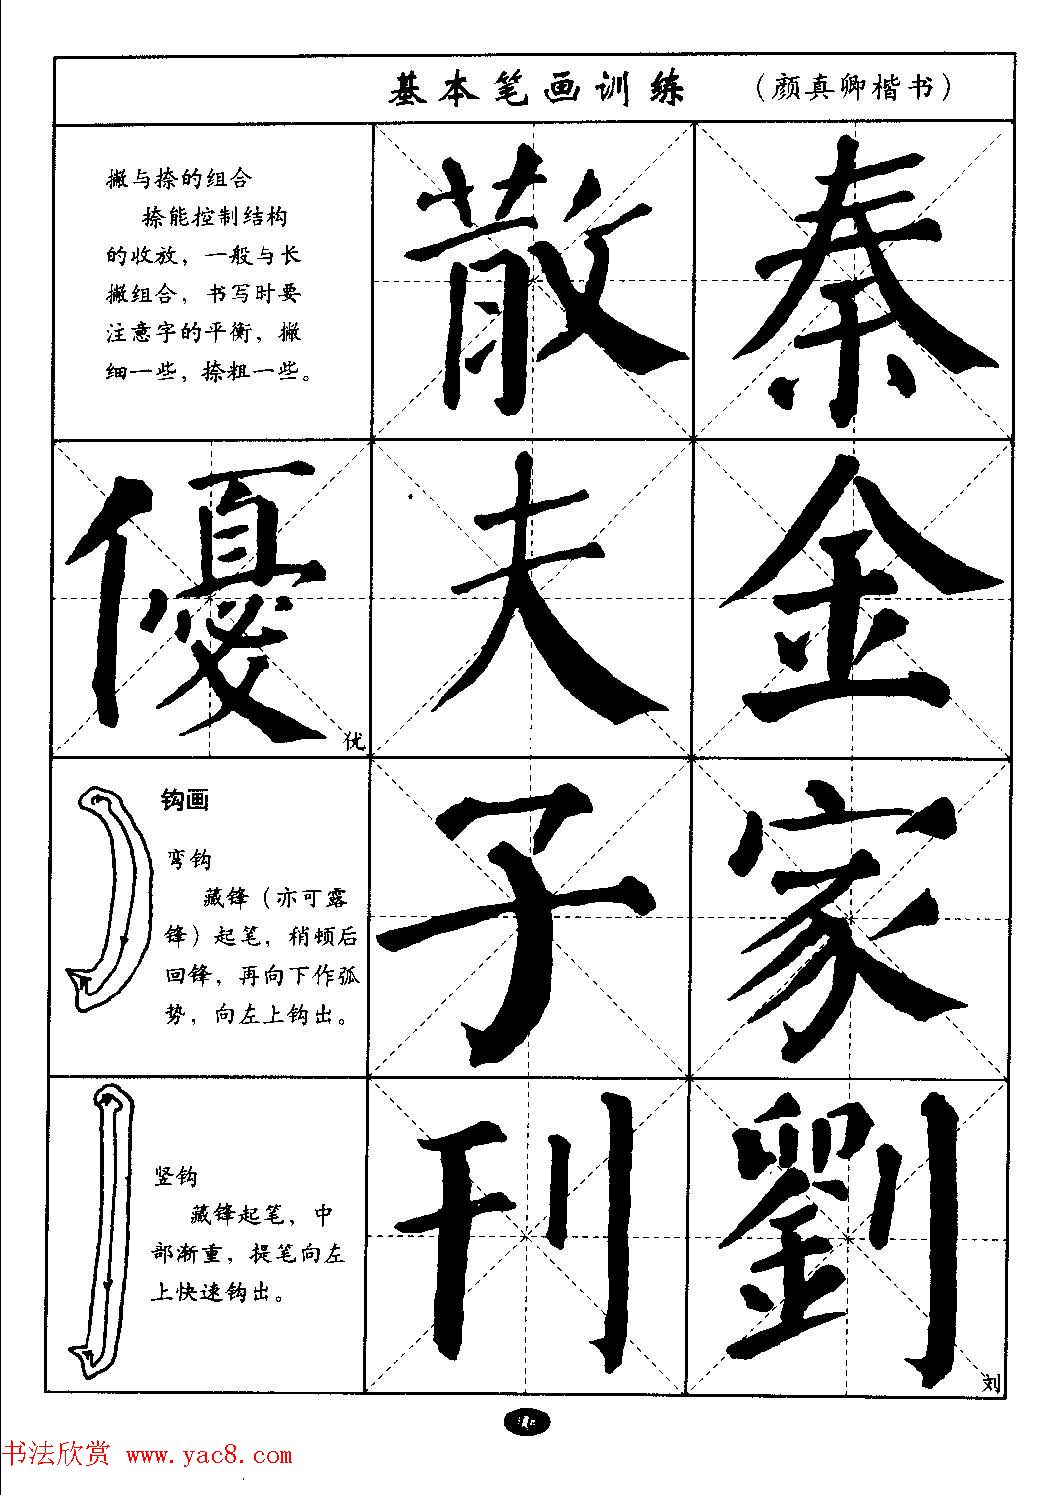 基本笔画训练 （颜真卿楷书）
撇与捺的组合
捺能控制结构
的收放，一般与长
撇组合，书写时要
注意字的平衡，撇
细一些，捺粗一些。
散 秦
優 夫 金
优
钩画
弯钩
藏锋（亦可露
锋）起笔，稍顿后
回锋，再向下作弧
势，向左上钩出。
子 家
竖钩
藏锋起笔，中
部渐重，提笔向左
上快速钩出。
刊 劉
刘
书法欣赏 www.yac8.com